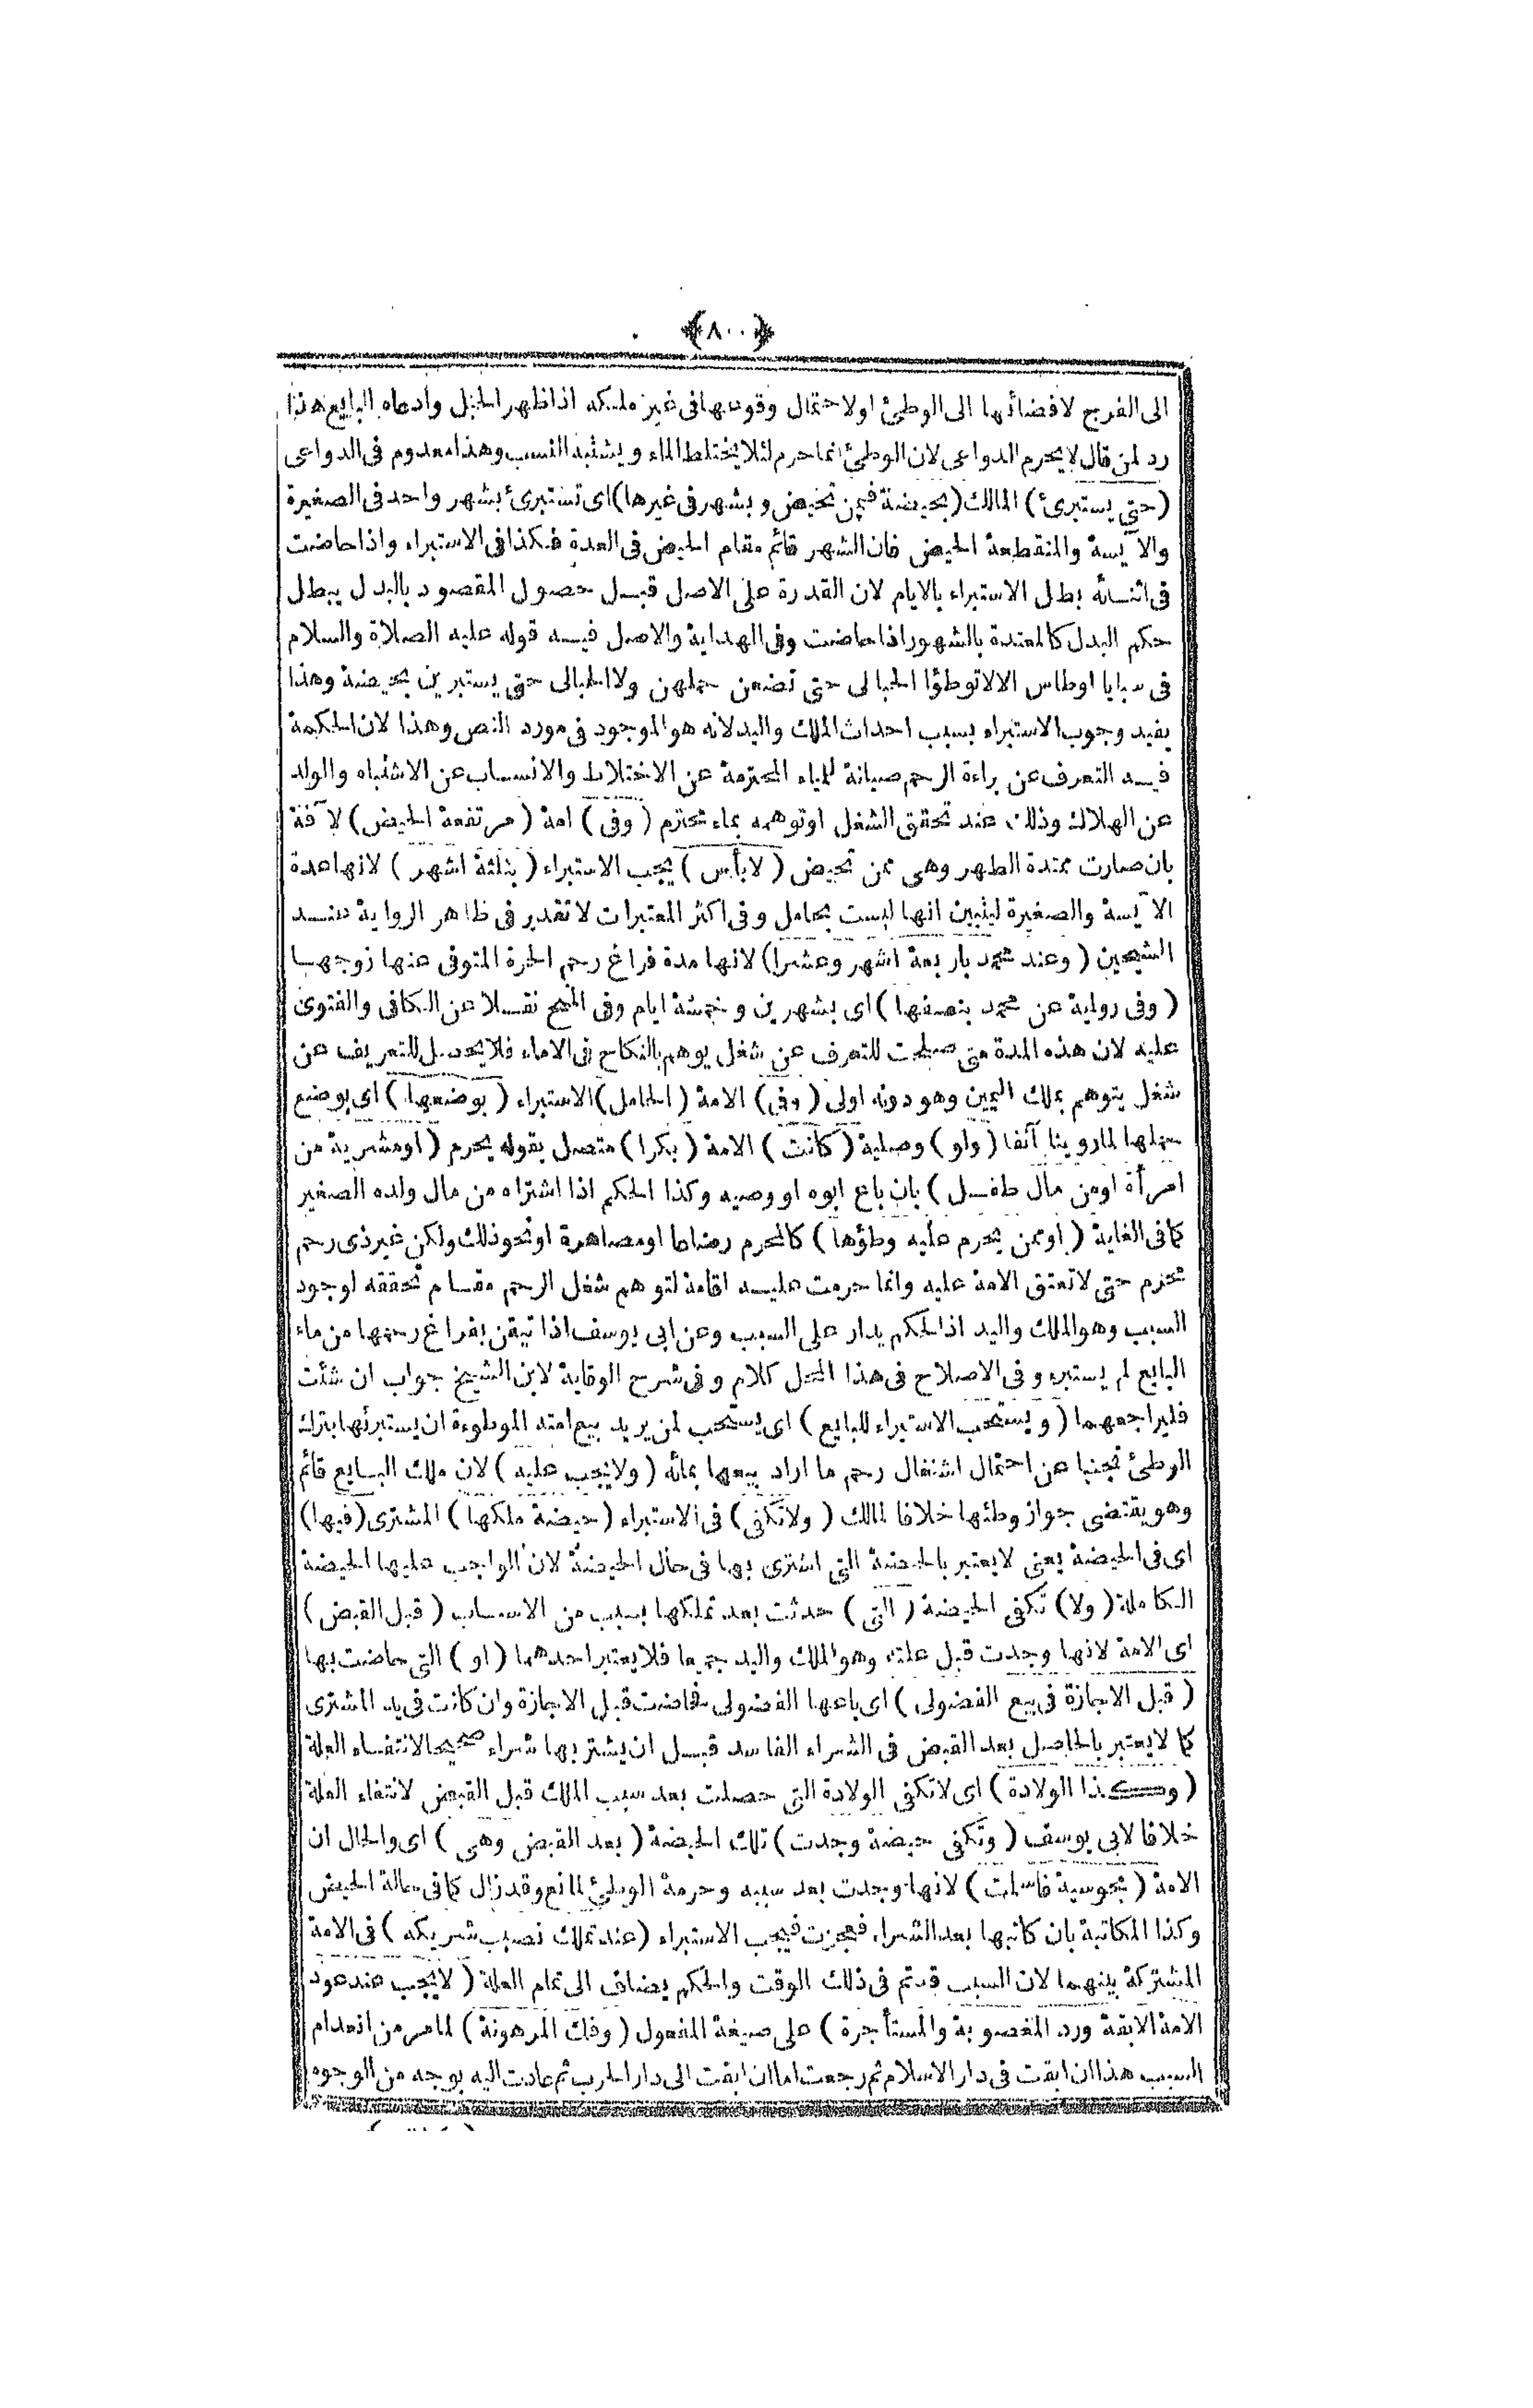 ﴿٨٠٠﴾
الى الفرج لافضائها الى الوطئ اولاحتمال وقوعها فى غير ملكه اذا ظهر الحبل وادعاه البايع هذا
رد لمن قال لا يحرم الدواعى لان الوطئ انما حرم لئلا يختلط الماء ويشتبه النسب وهذا معدوم فى الدواعى
(حتى يستبرئ) المالك (بحيضة فيمن تحيض وبشهر فى غيرها) اى تستبرئ بشهر واحد فى الصغيرة
والآيسة والمنقطعة الحيض فان الشهر قائم مقام الحيض فى العدة فكذا فى الاستبراء واذا حاضت
فى اثنائه بطل الاستبراء بالايام لان القدرة على الاصل قبل حصول المقصود بالبدل يبطل
حكم البدل كالمعتدة بالشهور اذا حاضت وفى الهداية والاصل فيه قوله عليه الصلاة والسلام
فى سبايا اوطاس الا لا توطؤا الحبالى حتى تضعن حملهن ولا الحبالى حتى يستبرين بحيضة وهذا
يفيد وجوب الاستبراء بسبب احداث الملك واليد لانه هو الموجود فى مورد النص وهذا لان الحكمة
فيه التعرف عن براءة الرحم صيانة للمياه المحترمة عن الاختلاط والانساب عن الاشتباه والولد
عن الهلاك وذلك عند تحقق الشغل او توهمه بماء محترم (وفى) امة (مرتفعة الحيض) لآفة
بان صارت ممتدة الطهر وهى ممن تحيض (لابأس) يجب الاستبراء (بثلثة اشهر) لانها عدة
الآيسة والصغيرة ليتبين انها ليست بحامل وفى اكثر المعتبرات لا تقدير فى ظاهر الرواية عند
الشيخين (وعند محمد باربعة اشهر وعشرا) لانها مدة فراغ رحم الحرة المتوفى عنها زوجها
(وفى رواية عن محمد بنصفها) اى بشهرين وخمسة ايام وفى المنح نقلا عن الكافى والفتوى
عليه لان هذه المدة متى صلحت للتعرف عن شغل يوهم بالنكاح فى الاماء فلا يحصل للتعريف عن
شغل يتوهم بملك اليمين وهو دونه اولى (وفى) الامة (الحامل) الاستبراء (بوضعها) اى بوضع
حملها لما روينا آنفا (ولو) وصلية (كانت) الامة (بكرا) متصل بقوله يحرم (او مشرية من
امرأة او من مال طفل) بان باع ابوه او وصيه وكذا الحكم اذا اشتراه من مال ولده الصغير
كما فى الغاية (او ممن يحرم عليه وطؤها) كالمحرم رضاعا او مصاهرة او نحو ذلك ولكن غير ذى رحم
محرم حتى لا تعتق الامة عليه وانما حرمت عليه اقامة لتوهم شغل الرحم مقام تحققه لوجود
السبب وهو الملك واليد اذ الحكم يدار على السبب وعن ابى يوسف اذا تيقن بفراغ رحمها من ماء
البايع لم يستبرء وفى الاصلاح فى هذا المحل كلام وفى شرح الوقاية لابن الشيخ جواب ان شئت
فليراجعهما (ويستحب الاستبراء للبايع) اى يستحب لمن يريد بيع امته الموطوءة ان يستبرئها بترك
الوطئ تجنبا عن احتمال اشتغال رحم ما اراد بيعها بمائه (ولا يجب عليه) لان ملك البايع قائم
وهو يقتضى جواز وطئها خلافا لمالك (ولا تكفى) فى الاستبراء (حيضة ملكها) المشترى (فيها)
اى فى الحيضة يعنى لا يعتبر بالحيضة التى اشترى بها فى حال الحيضة لان الواجب عليها الحيضة
الكاملة (ولا) تكفى الحيضة (التى) حدثت بعد تملكها بسبب من الاسباب (قبل القبض)
اى الامة لانها وجدت قبل علته وهو الملك واليد جميعا فلا يعتبر احدهما (او) التى حاضت بها
(قبل الاجازة فى بيع الفضولى) اى باعها الفضولى فحاضت قبل الاجازة وان كانت فى يد المشترى
كما لا يعتبر بالحاصل بعد القبض فى الشراء الفاسد قبل ان يشتريها شراء صحيحا لانتفاء العلة
(وكذا الولادة) اى لا تكفى الولادة التى حصلت بعد سبب الملك قبل القبض لانتفاء العلة
خلافا لابى يوسف (وتكفى حيضة وجدت) تلك الحيضة (بعد القبض وهى) اى والحال ان
الامة (مجوسية فاسلمت) لانها وجدت بعد سببه وحرمة الوطئ لمانع وقد زال كما فى حالة الحيض
وكذا المكاتبة بان كاتبها بعد الشراء فعجزت فيجب الاستبراء (عند تملك نصيب شريكه) فى الامة
المشتركة بينهما لان السبب قد تم فى ذلك الوقت والحكم يضاف الى تمام العلة (لا يجب عند عود
الامة الآبقة ورد المغصوبة والمستأجرة) على صيغة المفعول (وفك المرهونة) لما مر من انعدام
السبب هذا ان ابقت فى دار الاسلام ثم رجعت اما ان ابقت الى دار الحرب ثم عادت اليه بوجه من الوجوه